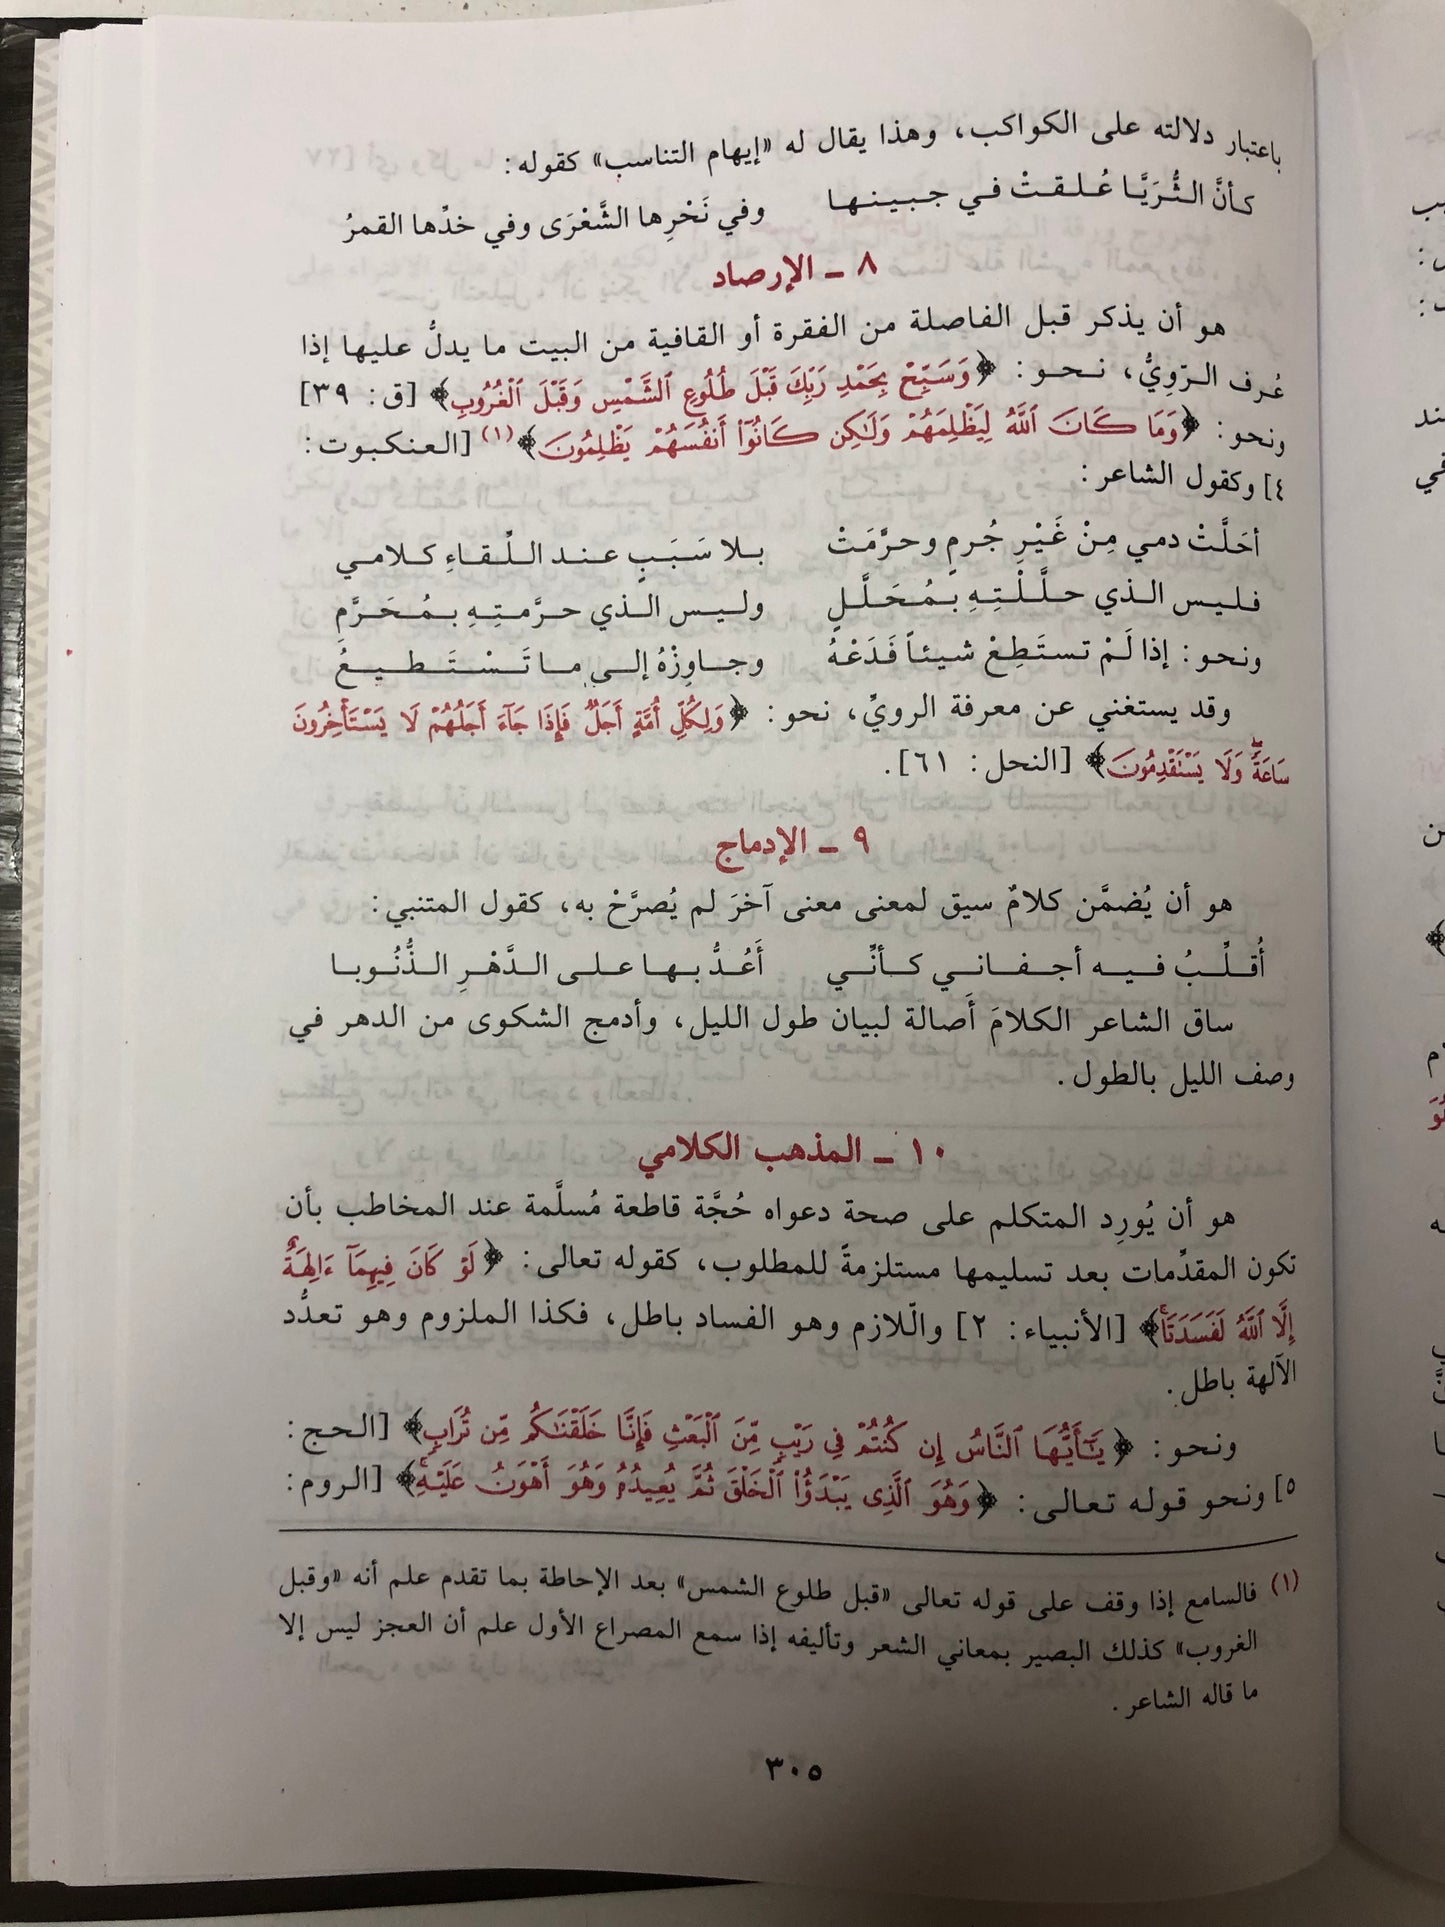 باعتبار دلالته على الكواكب، وهذا يقال له «إيهام التناسب» كقوله:
كأنَّ الثُّرَيَّا عُلقتْ في جبينها وفي نَحْرِها الشَّعْرَى وفي خدِّها القمرُ
٨ ـ الإرصاد
هو أن يذكر قبل الفاصلة من الفقرة أو القافية من البيت ما يدلُّ عليها إذا
عُرف الرّوِيُّ، نحو: ﴿وَسَبِّحْ بِحَمْدِ رَبِّكَ قَبْلَ طُلُوعِ ٱلشَّمْسِ وَقَبْلَ ٱلْغُرُوبِ﴾ [ق: ٣٩]
ونحو: ﴿وَمَا كَانَ ٱللَّهُ لِيَظْلِمَهُمْ وَلَٰكِن كَانُوٓا۟ أَنفُسَهُمْ يَظْلِمُونَ﴾(١) [العنكبوت:
٤] وكقول الشاعر:
أحَلَّتْ دمي مِنْ غَيْرِ جُرمٍ وحرَّمَتْ بلا سَبَبٍ عند اللِّقاءِ كلامي
فليس الذي حلَّلْتِهِ بمُحَلَّلٍ وليس الذي حرَّمتِهِ بمُحَرَّمِ
ونحو: إذا لَمْ تستَطِعْ شيئاً فَدَعْهُ وجاوِزْهُ إلى ما تَسْتَطيعُ
وقد يستغني عن معرفة الرويِّ، نحو: ﴿وَلِكُلِّ أُمَّةٍ أَجَلٌ فَإِذَا جَآءَ أَجَلُهُمْ لَا يَسْتَأْخِرُونَ
سَاعَةً وَلَا يَسْتَقْدِمُونَ﴾ [النحل: ٦١].
٩ ـ الإدماج
هو أن يُضمَّن كلامٌ سيق لمعنى معنى آخرَ لم يُصرَّحْ به، كقول المتنبي:
أُقلِّبُ فيه أجفاني كأنِّي أَعُدُّ بها على الدَّهْرِ الذُّنُوبا
ساق الشاعر الكلامَ أَصالة لبيان طول الليل، وأدمج الشكوى من الدهر في
وصف الليل بالطول.
١٠ ـ المذهب الكلامي
هو أن يُورِد المتكلم على صحة دعواه حُجَّة قاطعة مُسلَّمة عند المخاطب بأن
تكون المقدِّمات بعد تسليمها مستلزمةً للمطلوب، كقوله تعالى: ﴿لَوْ كَانَ فِيهِمَآ ءَالِهَةٌ
إِلَّا ٱللَّهُ لَفَسَدَتَا﴾ [الأنبياء: ٢] والّلازم وهو الفساد باطل، فكذا الملزوم وهو تعدُّد
الآلهة باطل.
ونحو: ﴿يَٰٓأَيُّهَا ٱلنَّاسُ إِن كُنتُمْ فِى رَيْبٍ مِّنَ ٱلْبَعْثِ فَإِنَّا خَلَقْنَٰكُم مِّن تُرَابٍ﴾ [الحج:
٥] ونحو قوله تعالى: ﴿وَهُوَ ٱلَّذِى يَبْدَؤُا۟ ٱلْخَلْقَ ثُمَّ يُعِيدُهُۥ وَهُوَ أَهْوَنُ عَلَيْهِ﴾ [الروم:
(١) فالسامع إذا وقف على قوله تعالى «قبل طلوع الشمس» بعد الإحاطة بما تقدم علم أنه «وقبل
الغروب» كذلك البصير بمعاني الشعر وتأليفه إذا سمع المصراع الأول علم أن العجز ليس إلا
ما قاله الشاعر.
٣٠٥